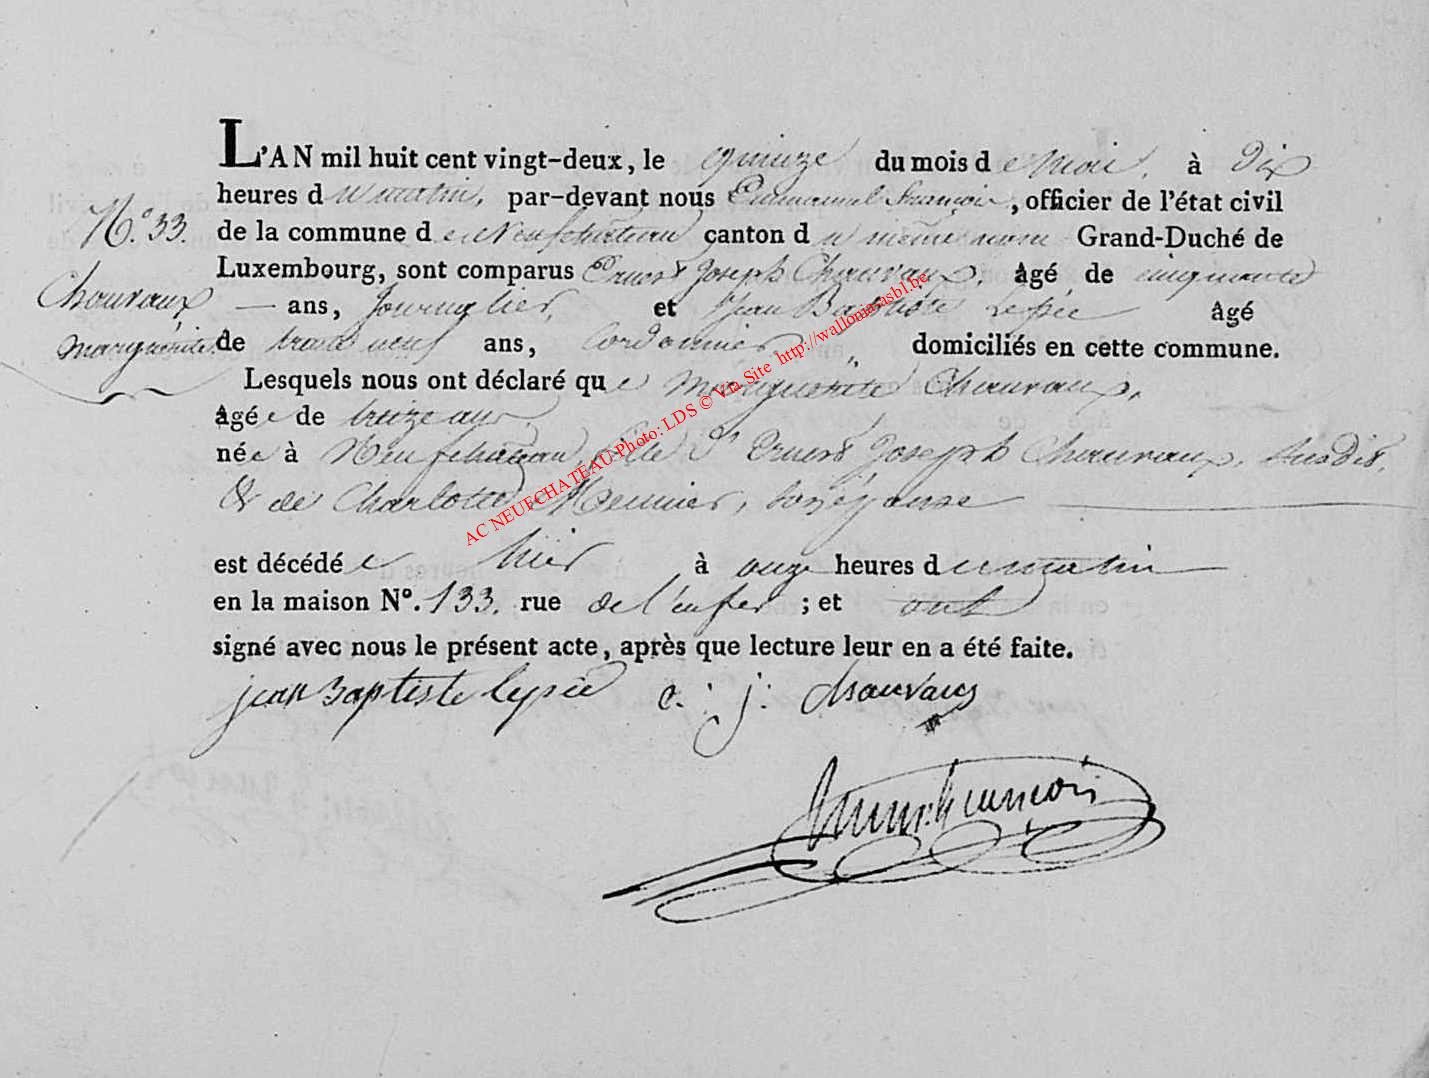 L'AN mil huit cent vingt-deux, le quinze du mois de mai, à dix
heures du matin, par-devant nous Emmanuel François, officier de l'état civil
N.° 33.
de la commune de Neufchateau canton du même nom Grand-Duché de
Luxembourg, sont comparus Joseph Chauvaux, âgé de cinquante
Chauvaux
— ans, Journalier, et Jean Baptiste Lepée âgé
Marguérite.
de neuf ans, Cordonnier „ domiciliés en cette commune.
Lesquels nous ont déclaré que Marguerite Chauvaux,
âgée de treize ans
née à Neufchateau, fille d' Joseph Chauvaux, susdit,
& de Charlotte Meunier, son épouse
est décédée hier à onze heures du matin
en la maison N°. 133. rue de l'enfer ; et ont
signé avec nous le présent acte, après que lecture leur en a été faite.
jean Baptiste lepée e : j : chauvaux
Emm. François
AC NEUFCHATEAU Photo: LDS © Via Site http://walloniasasbl.be